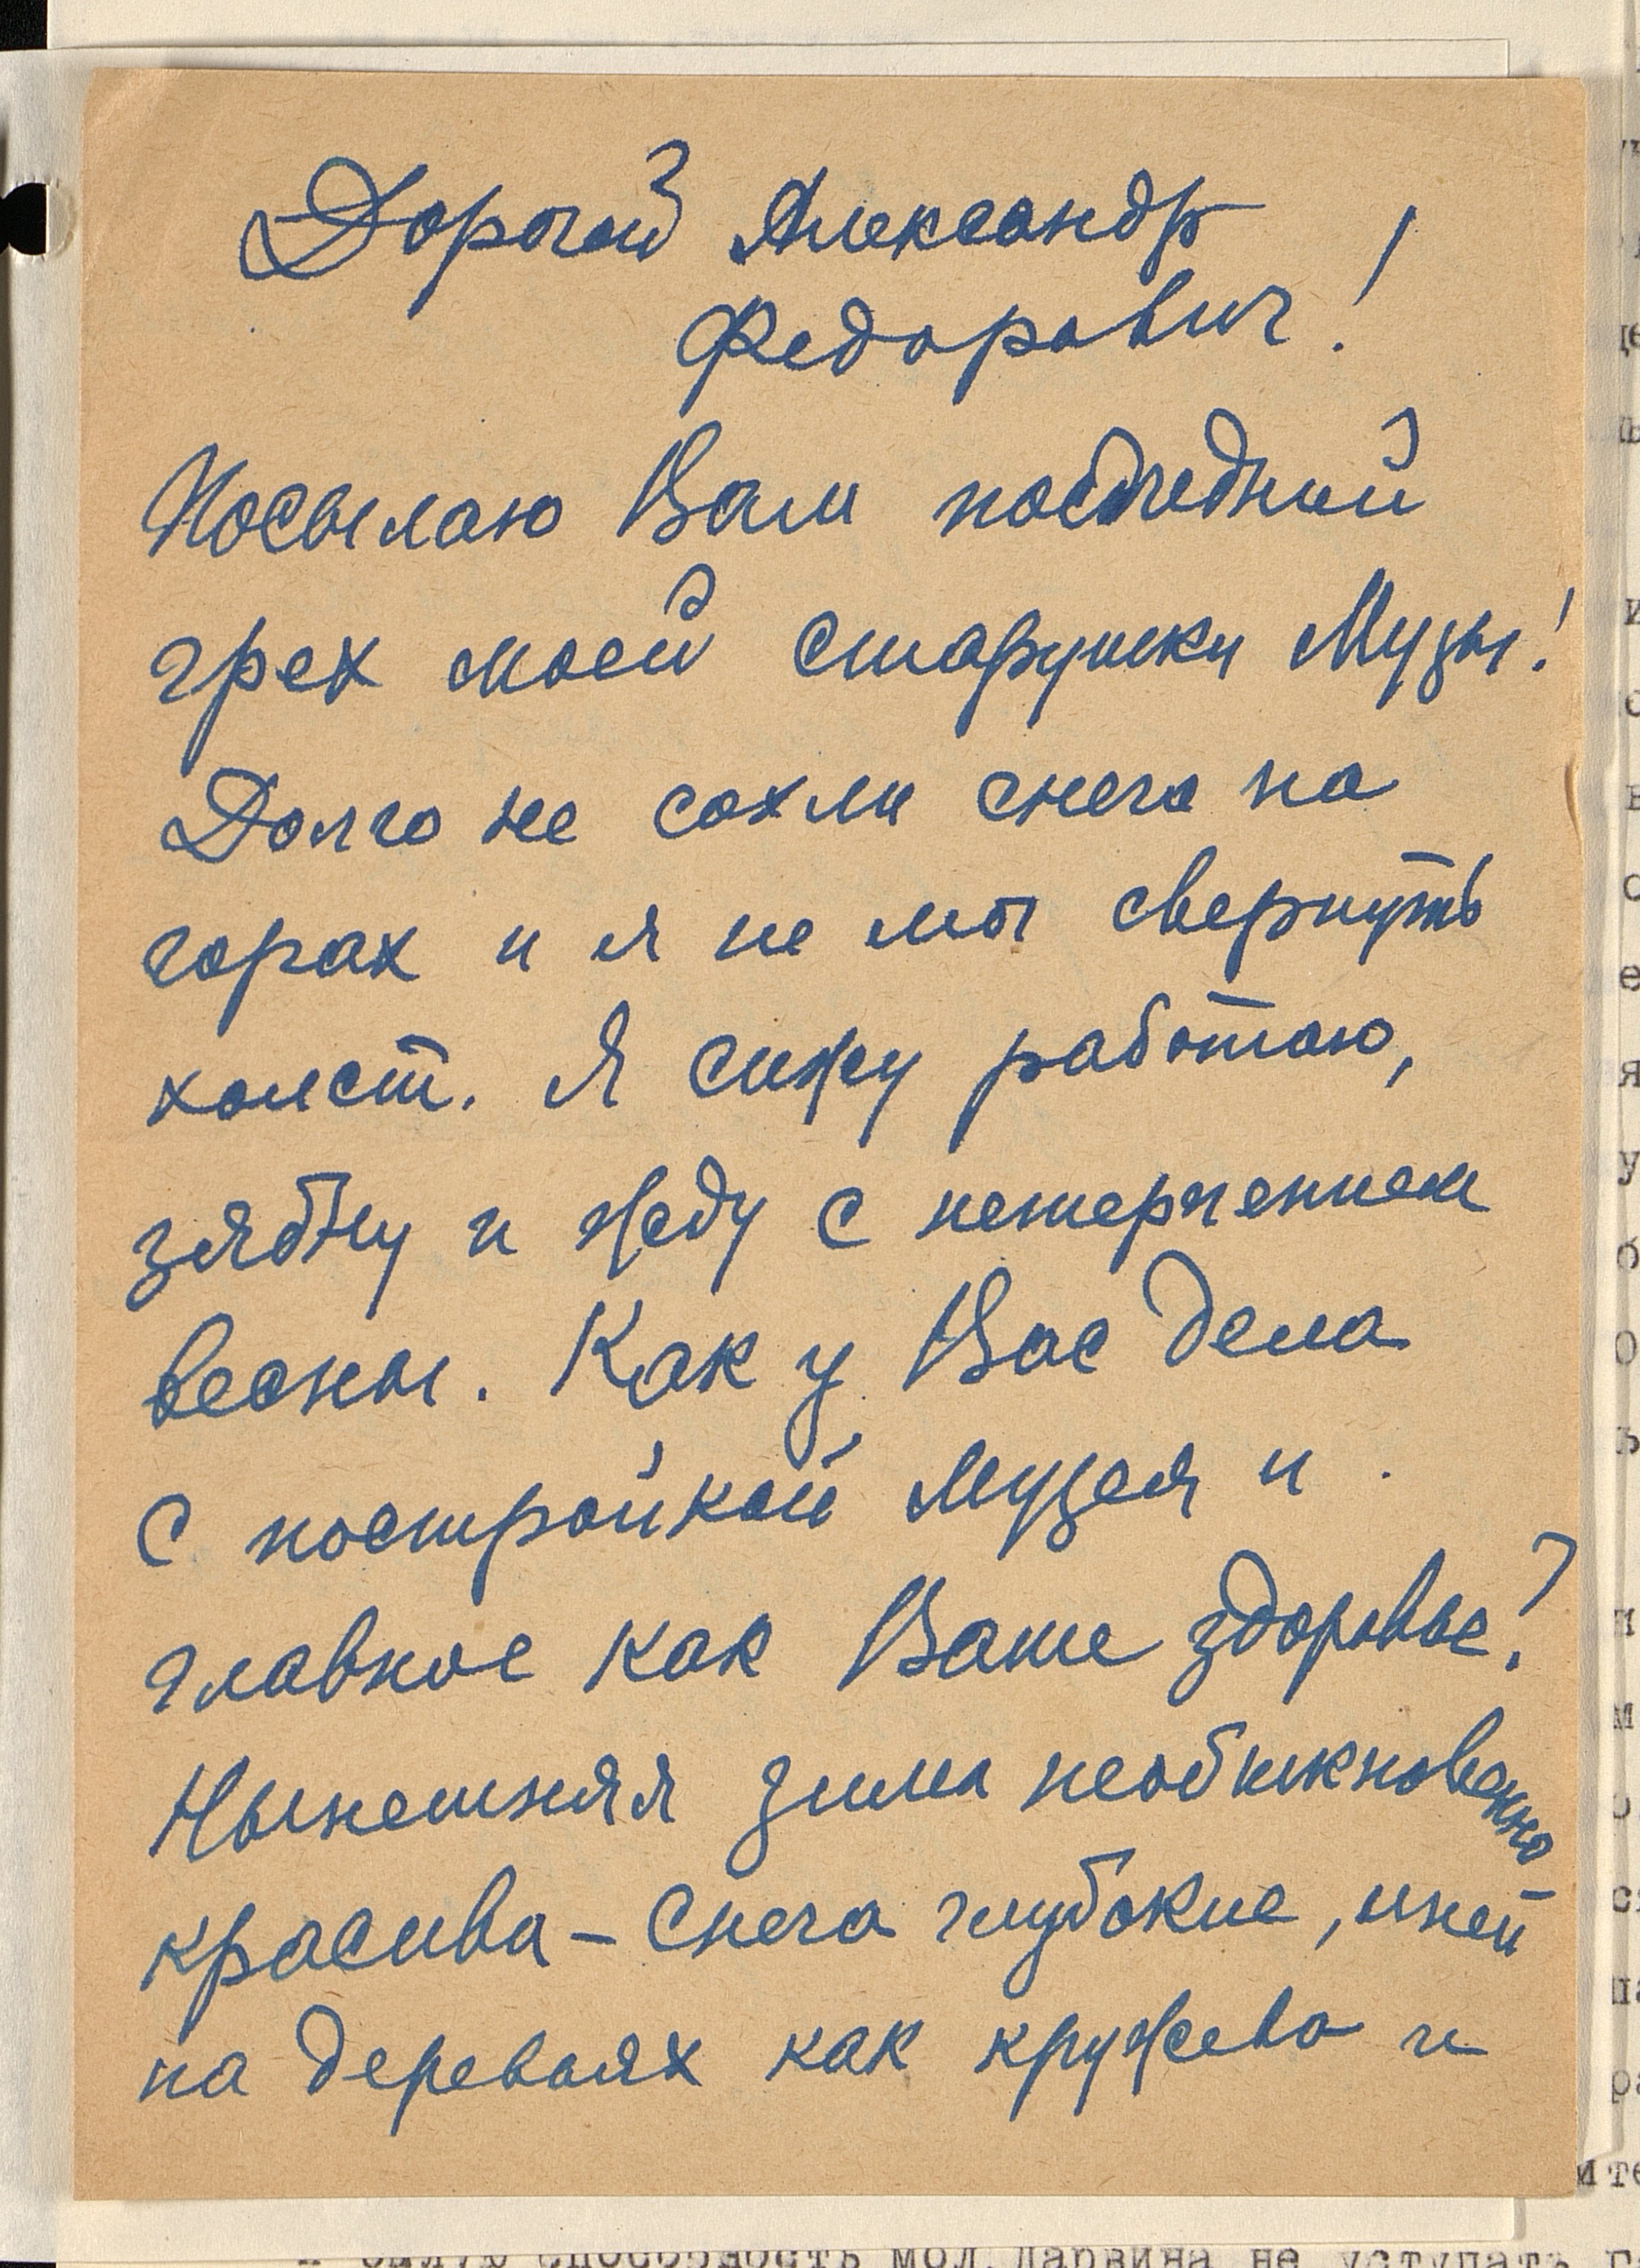 Дорогой Александр
Федорович!
Посылаю Вам последний
грех моей старушки Музы!
Долго не сохли снега на
горах и я не мог свернуть
холст. Я сижу работаю,
зябну и жду с нетерпением
весны. Как у Вас дела
с постройкой музея и
главное как Ваше здоровье?
Нынешняя зима необыкновенно
красива – снега глубокие, иней
на деревьях как кружево и